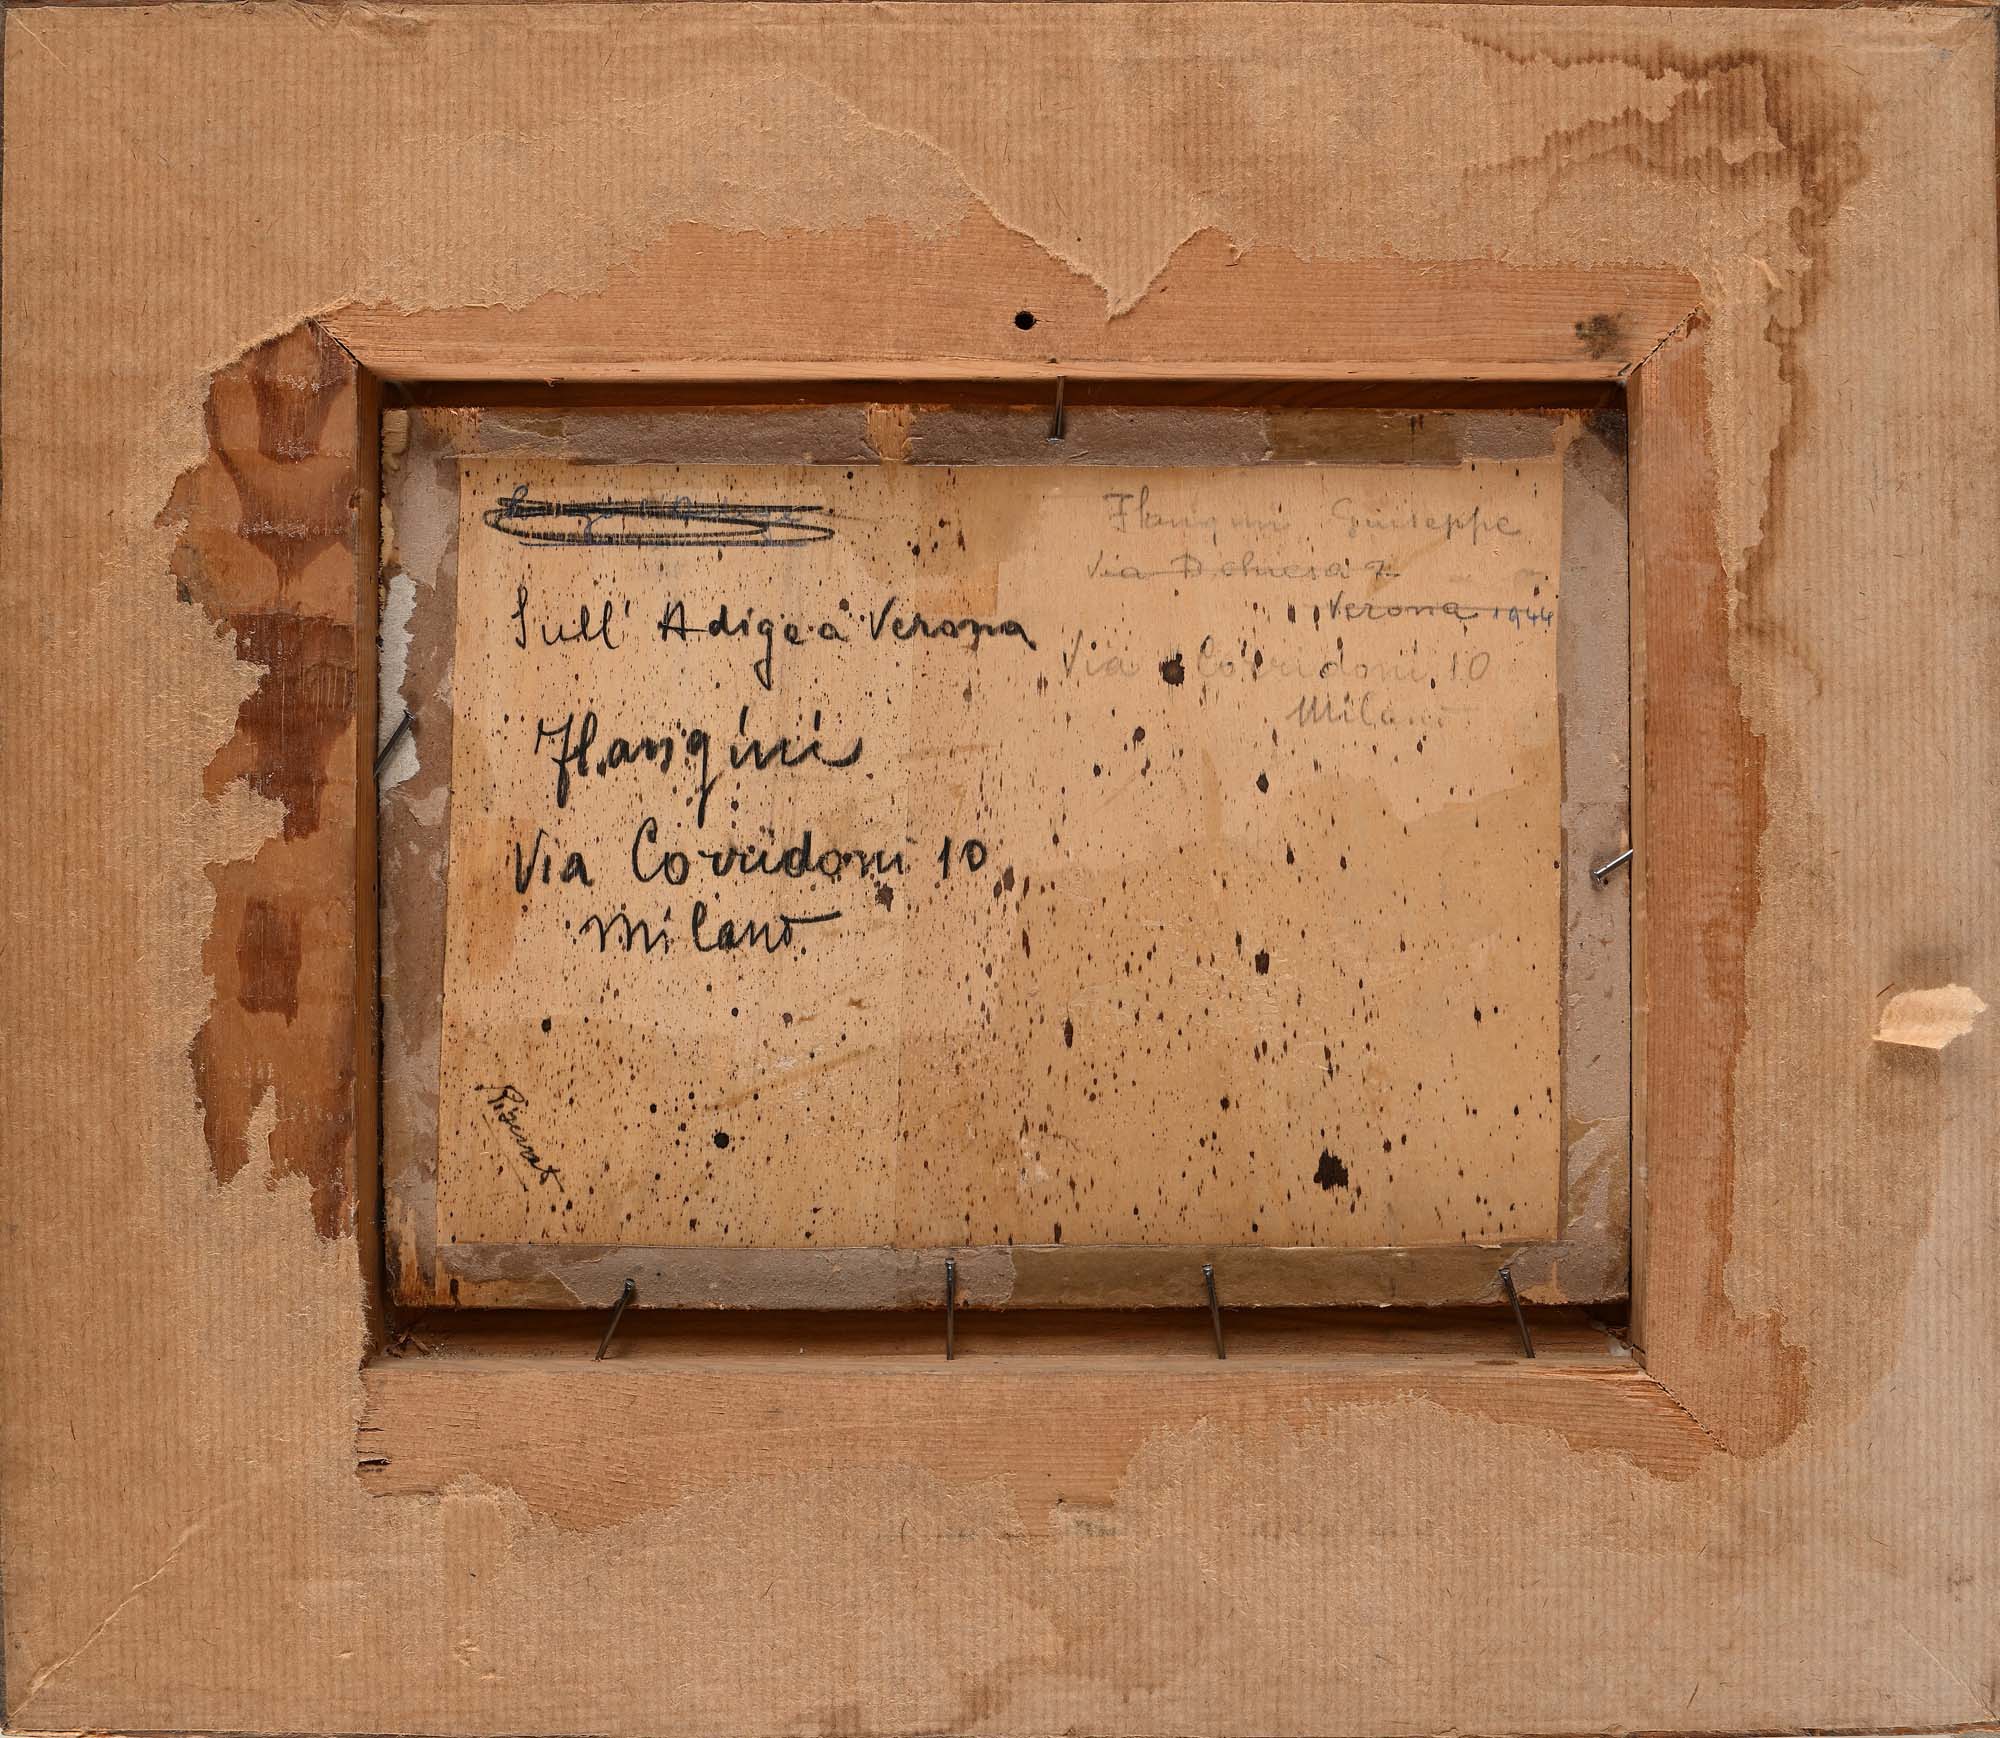 Lungo l'Adige
Sull' Adige a Verona
Flangini
Via Corridoni 10
Milano
Riservato
Flangini Giuseppe
Via
Verona 1944
Via Corridoni 10
Milano